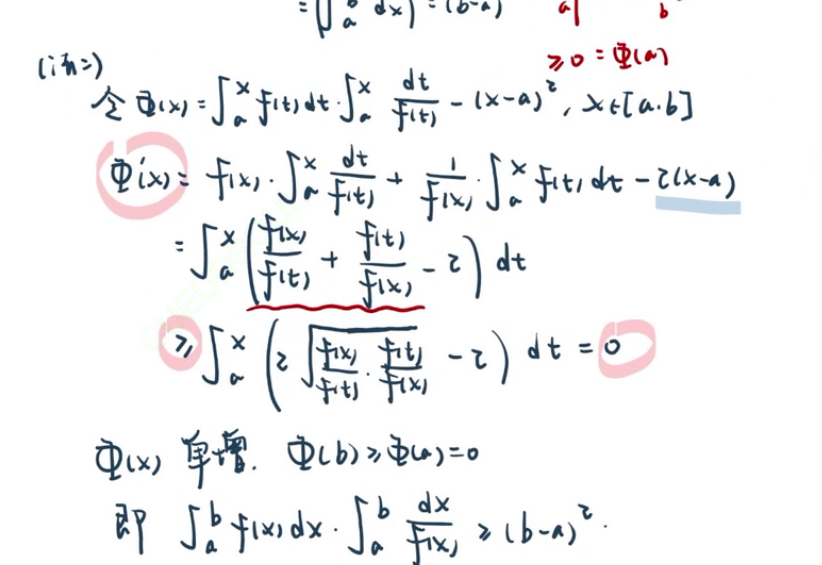 = (∫_a^b dx)² = (b-a)² a b
≥0 = Φ(a)
(法二)
令 Φ(x) = ∫_a^x f(t)dt · ∫_a^x dt/f(t) - (x-a)², x∈[a.b]
Φ'(x) = f(x) · ∫_a^x dt/f(t) + 1/f(x) · ∫_a^x f(t)dt - 2(x-a)
= ∫_a^x ( f(x)/f(t) + f(t)/f(x) - 2 ) dt
≥ ∫_a^x ( 2√( f(x)/f(t) · f(t)/f(x) ) - 2 ) dt = 0
Φ(x) 单增. Φ(b) ≥ Φ(a) = 0
即 ∫_a^b f(x)dx · ∫_a^b dx/f(x) ≥ (b-a)².